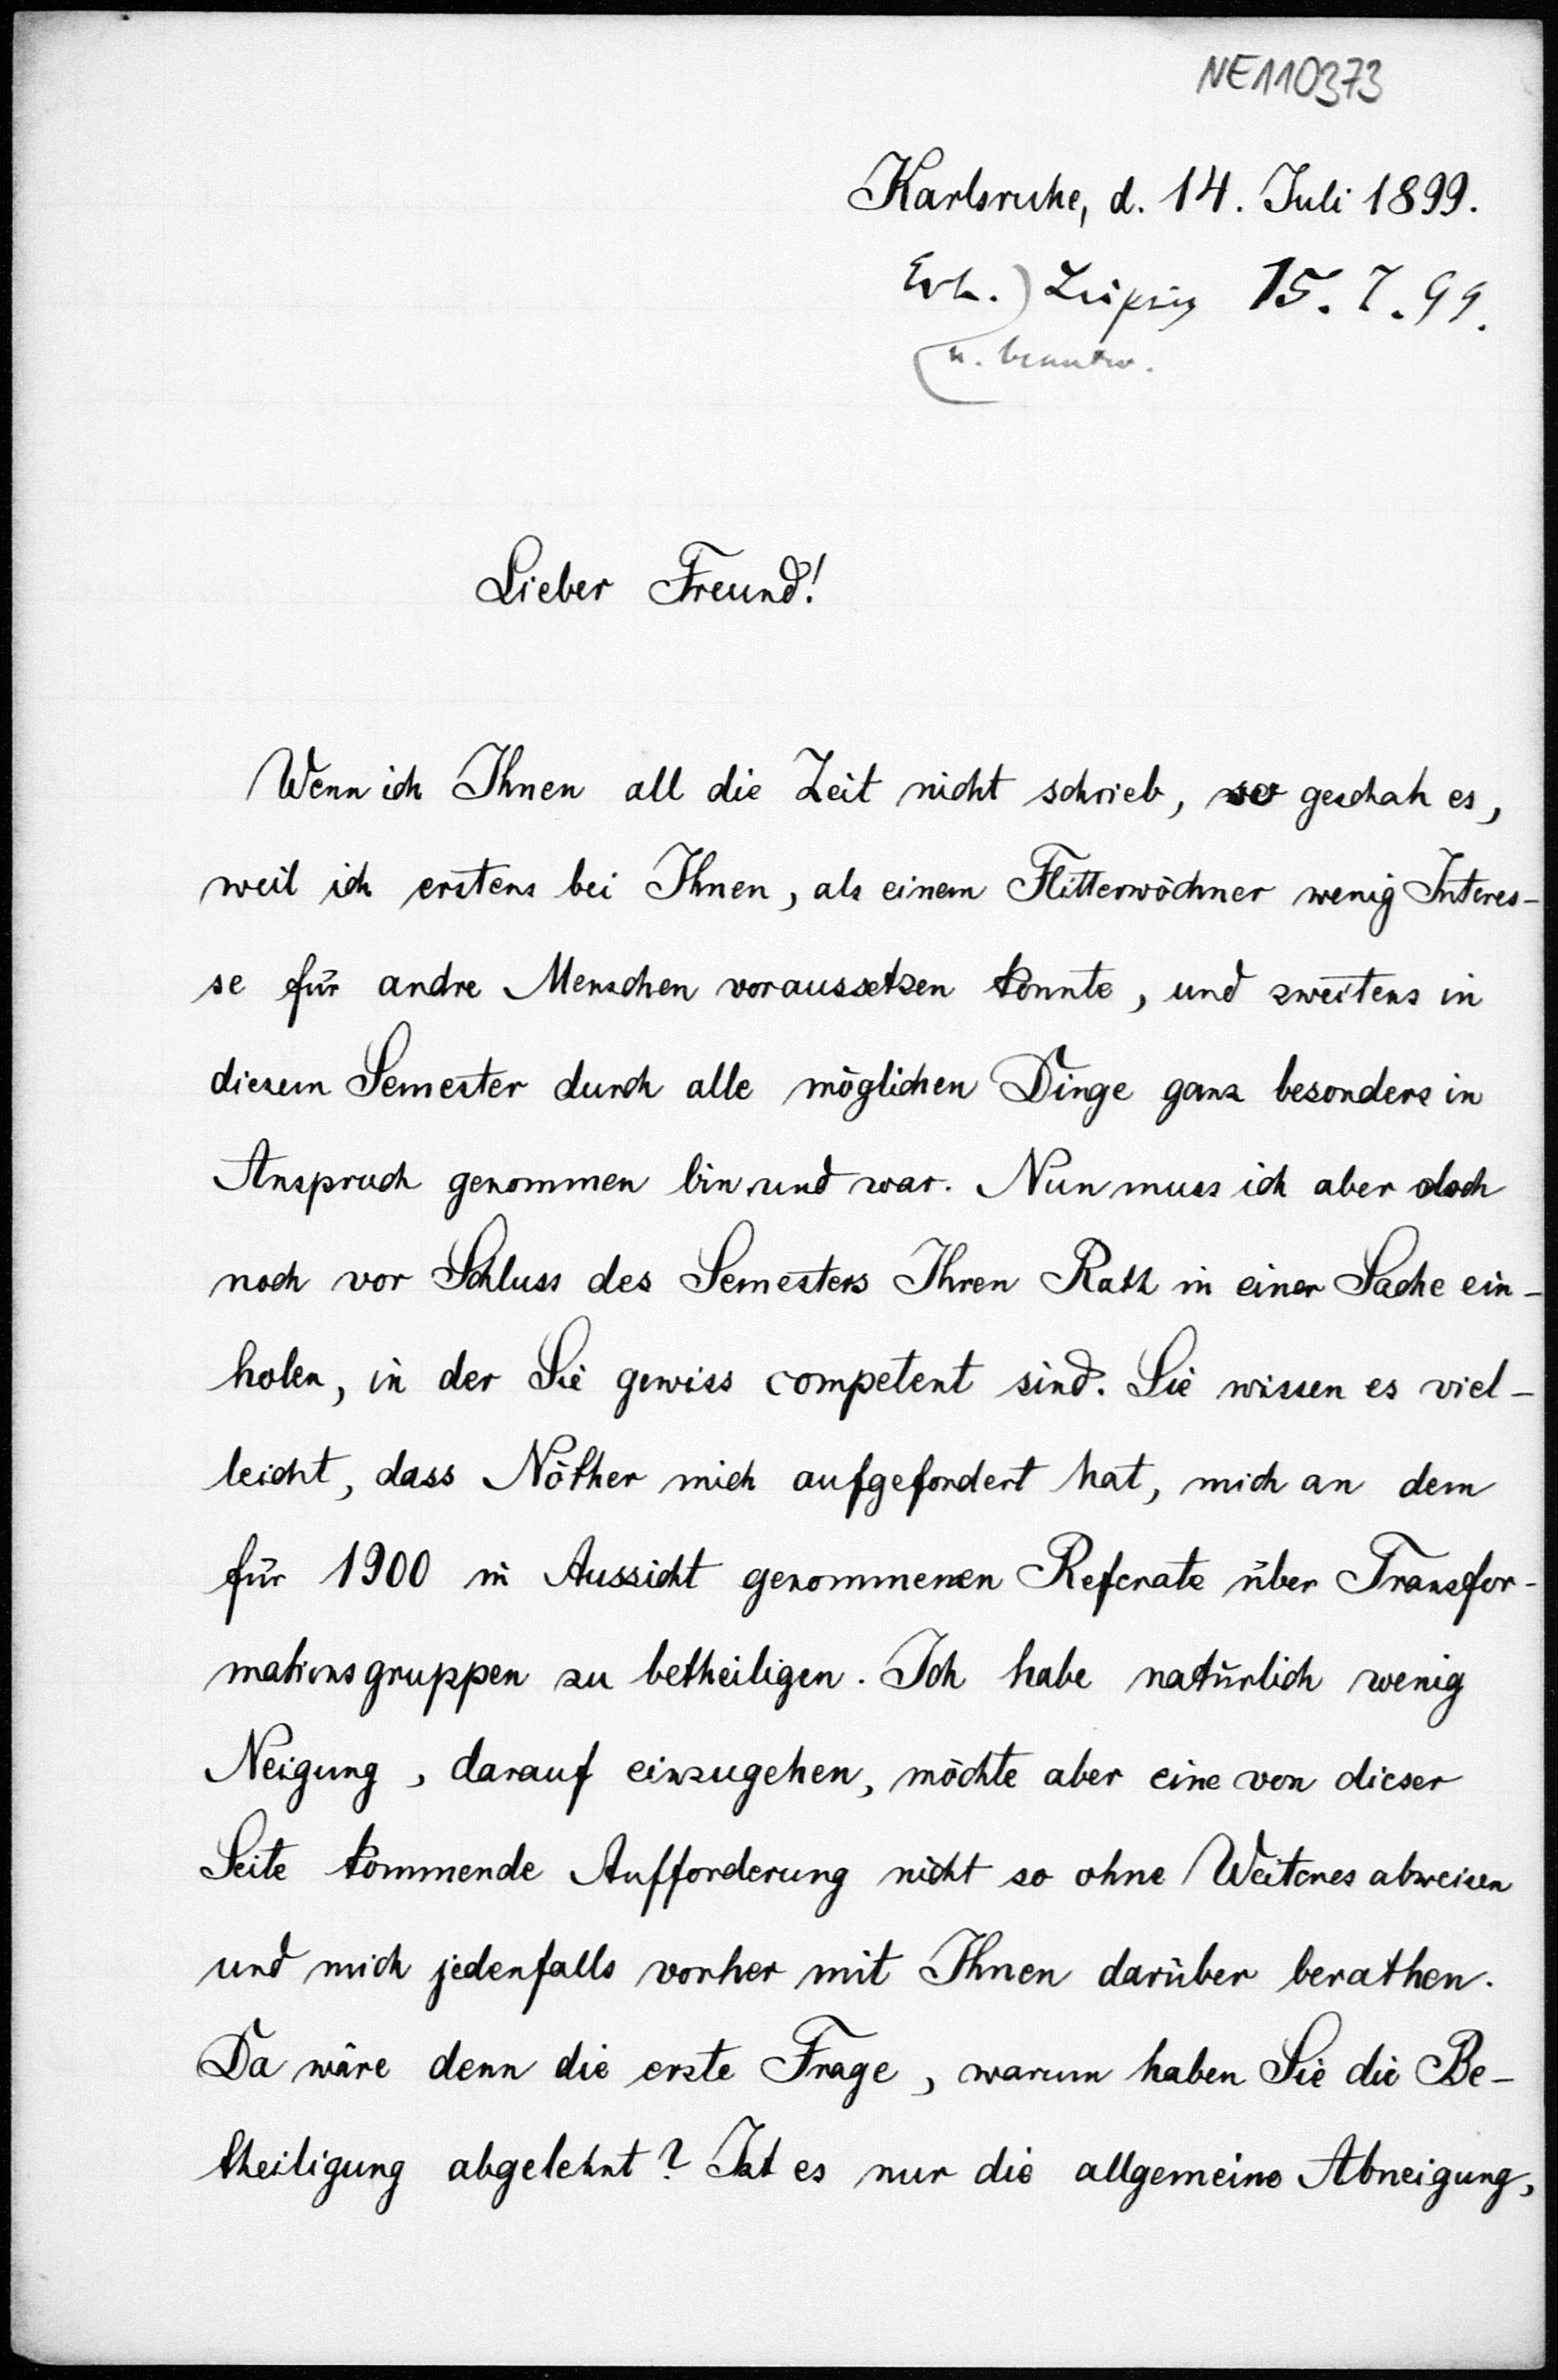 NE110373
Karlsruhe, d. 14. Juli 1899.
Erh. ) Leipzig 15. 7. 99.
u. beantw.
Lieber Freund!
Wenn ich Ihnen all die Zeit nicht schrieb, so geschah es,
weil ich erstens bei Ihnen, als einem Flitterwöchner wenig Interes-
se für andre Menschen voraussetzen konnte, und zweitens in
diesem Semester durch alle möglichen Dinge ganz besonders in
Anspruch genommen bin und war. Nun muss ich aber doch
noch vor Schluss des Semesters Ihren Rath in einer Sache ein-
holen, in der Sie gewiss competent sind. Sie wissen es viel-
leicht, dass Nöther mich aufgefordert hat, mich an dem
für 1900 in Aussicht genommenen Referate über Transfor-
mationsgruppen zu betheiligen. Ich habe natürlich wenig
Neigung, darauf einzugehen, möchte aber eine von dieser
Seite kommende Aufforderung nicht so ohne Weiteres abweisen
und mich jedenfalls vorher mit Ihnen darüber berathen.
Da wäre denn die erste Frage, warum haben Sie die Be-
theiligung abgelehnt? Ist es nur die allgemeine Abneigung,